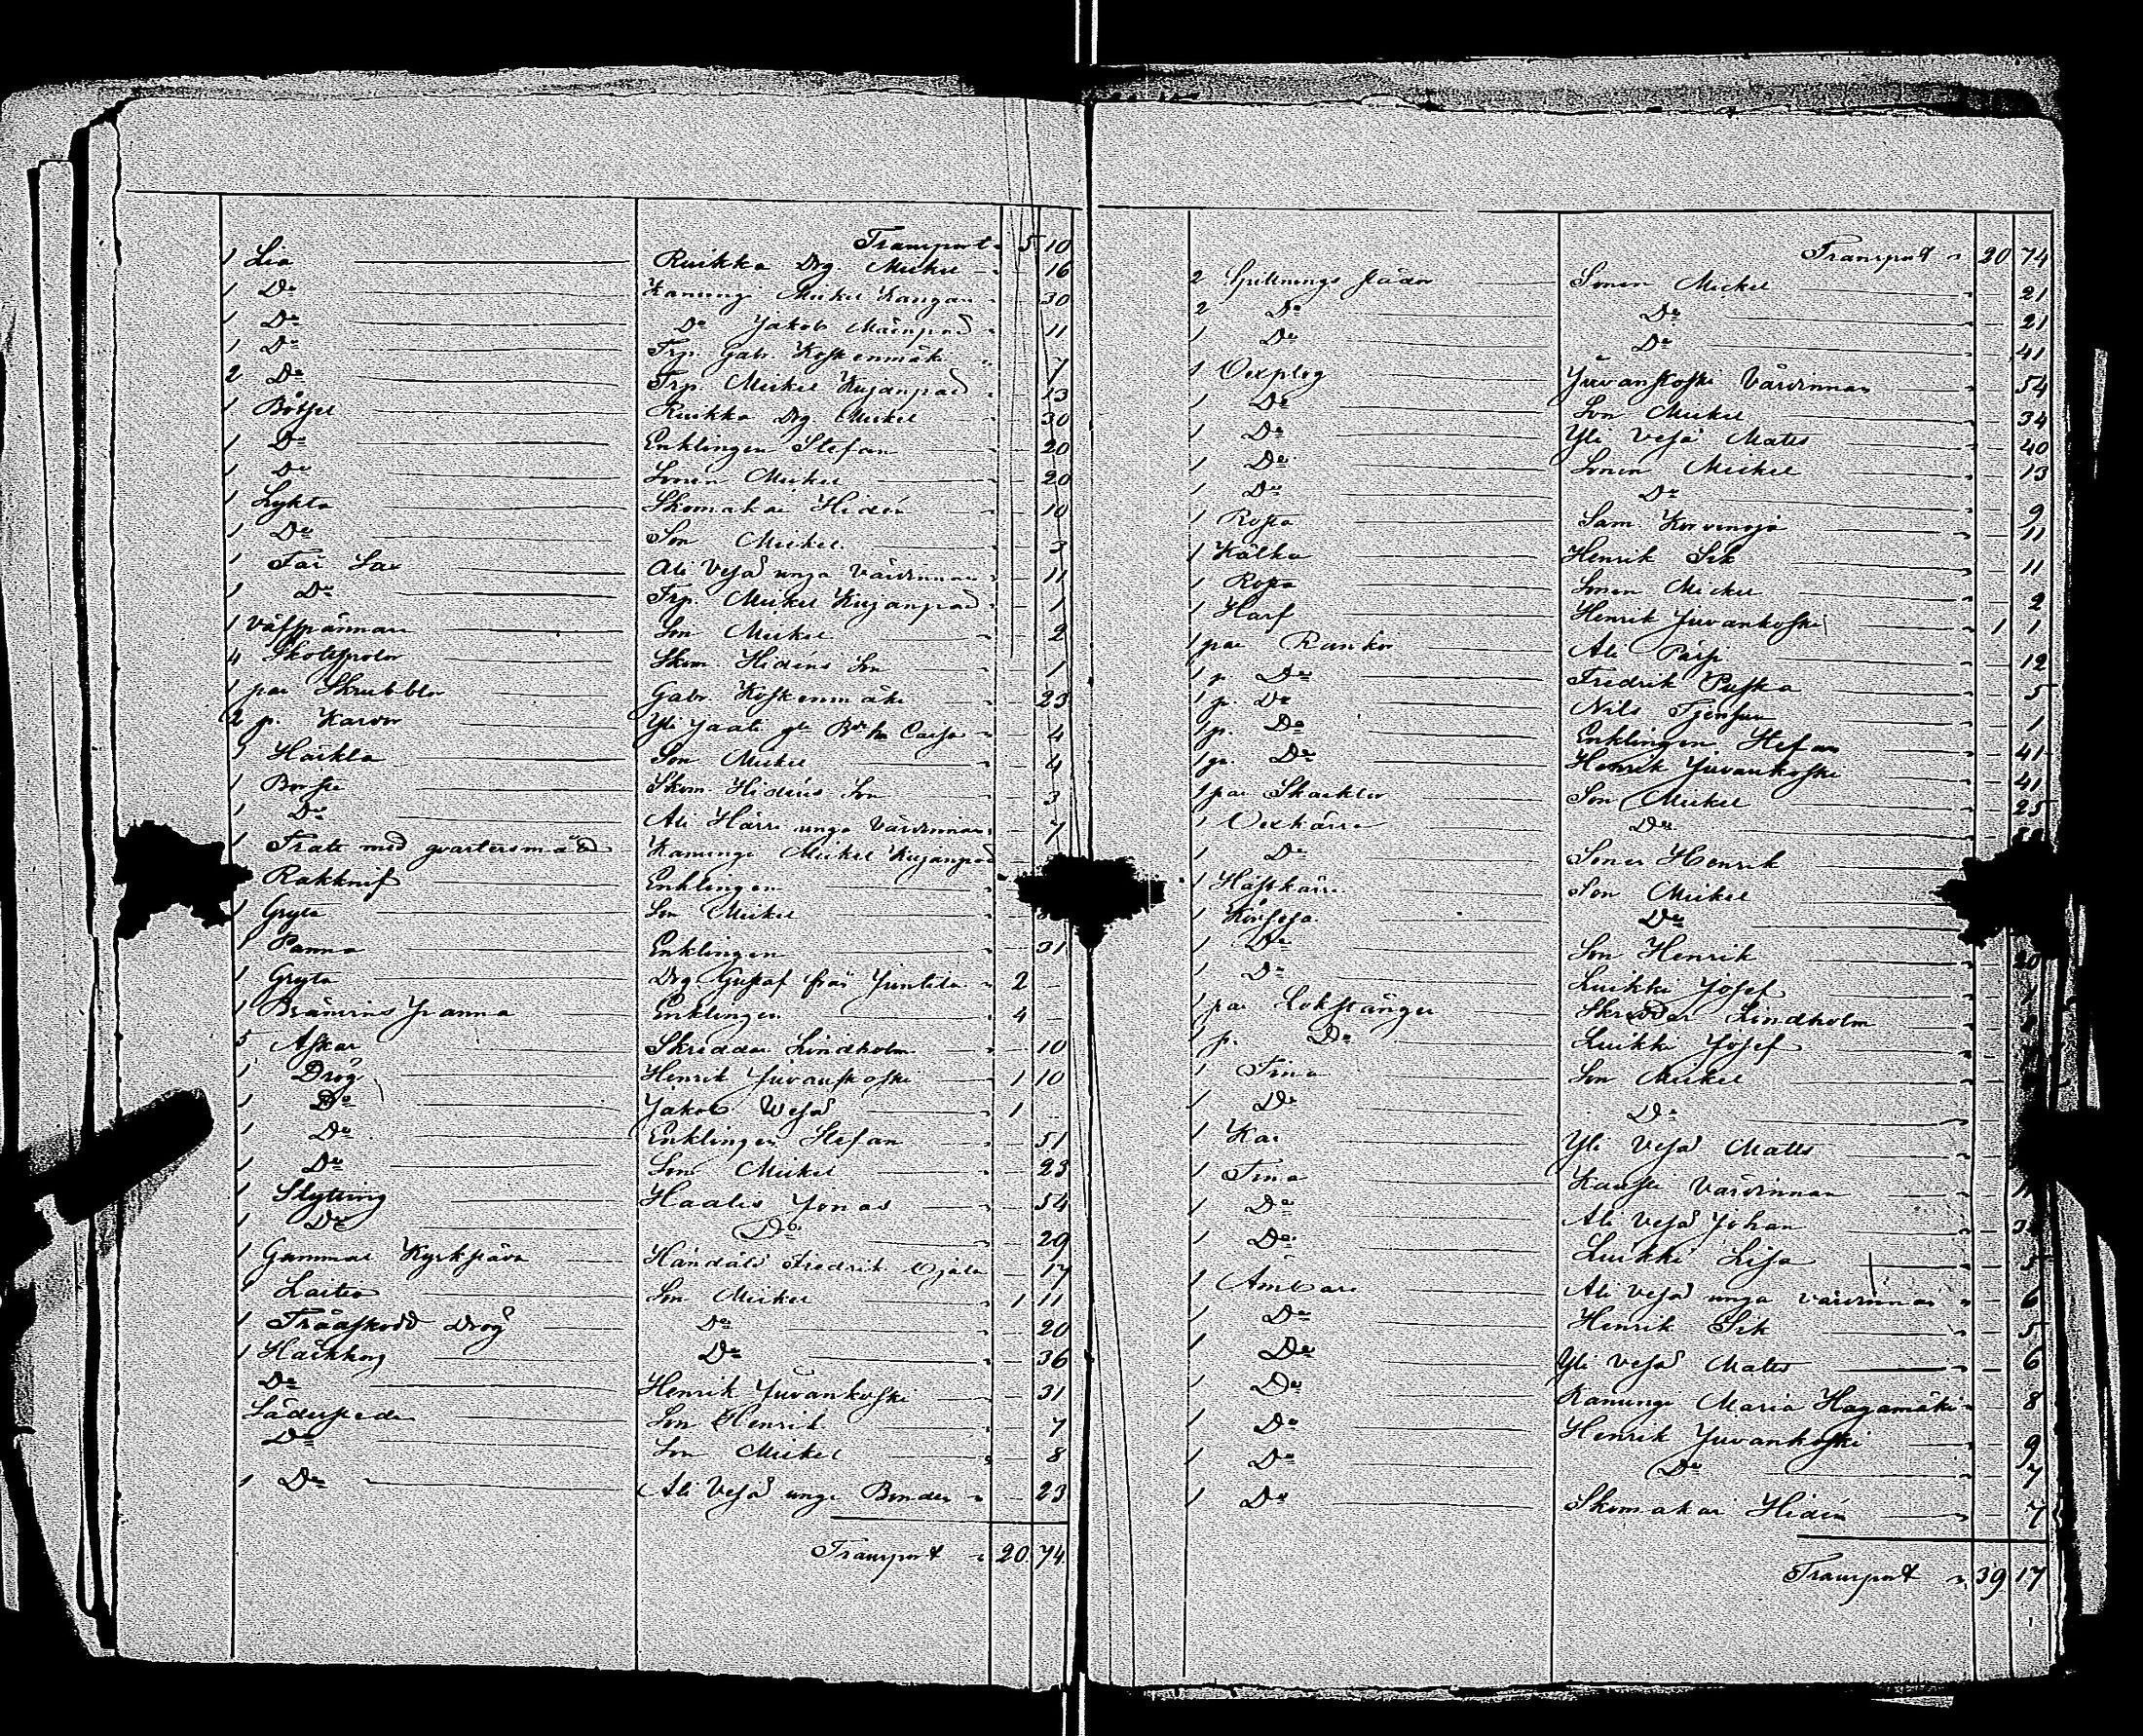 Transport 5 10
1 Lia Ruikka Drg. Mickel 16
1 Do Kanungi Mickel Kangas 30
1 Do Do Jakob Mäenpää 11
1 Do Trp. Gabr. Koskenmäki 7
2 Do Trp. Mickel Kujanpää 13
1 Böthel Ruikka Drg Mickel 30
1 Do Enklingen Stefan 20
1 Do Sonen Mickel 20
1 Lykta Skomakar Hidén 10
1 Do Son Mickel 3
1 Får Sax Ali Vesa unga Värdinnan 11
1 Do Trp. Mickel Kujanpää 1
1 Väfspännare Son Mickel 2
4 Skotspolar Skom. Hidéns Son 1
1 par Skrubblor Gabr. Koskenmäki 23
2 p. Kardor Yli Jaati Caisa 4
1 Häckla Son Mickel 4
1 Borste Skom. Hidéns Son 3
1 Do Ali Härri unga Värdinnan 7
1 Tratt med qvartersmått Kanungi Mickel Kujanpää
Rakknif Enklingen
1 Gryta Son Mickel
1 Panna Enklingen 31
1 Gryta Drg Gustaf från Juntila 2
1 Bränvins panna Enklingen 4
5 Askar Skreddar Lindholm 10
1 Drög Henrik Juvankoski 1 10
1 Do Jakob Wesa 1
1 Do Enklingen Stefan 51
1 Do Son Mickel 23
1 Slytting Haalis Jonas 54
1 Do Do 29
1 Gammal Kyrksläda Fredrik Ojala 17
1 Son Mickel 1 11
1 Träskodd Drög Do 20
1 Häckkorg Do 36
Do Henrik Juvankoski 31
Son Henrik 7
Do Son Mickel 8
1 Do Ali Vesa unge Bonden 23
Transport 20 74
Transport 20 74
2 Sonen Mickel 21
2 Do Do 21
1 Do Do 41
1 Oxplog Juvankoski Värdinnan 54
1 Do Son Mickel 34
1 Do Yli Vesa Matts 40
1 Do Sonen Mickel 13
1 Do Do 9
1 Rossa Sam. Korvenoja 11
1 Kälka Henrik Sik 11
1 Rossa Sonen Mickel 2
1 Harf Henrik Juvankoski 1 1
1 par Rankor Ali Pärsi 12
1 p. Do Fredrik Puska 5
1 p. Do Nils 1
1 p. Do Enklingen Stefan 41
1 p. Do Henrik Juvankoski 41
1 par Skacklor Son Mickel 25
1 Oxkärra Do
1 Do Sonen Henrik
1 Hästkärra Son Mickel
1 Do
1 Do Son Henrik 20
1 Do Luikki Josef
1 par Lokstänger Skreddar Lindholm
1 p. Do Luikki Josef
1 Tina Son Mickel
1 Do Do
1 Kar Yli Vesa Matts
1 Tina Värdinnan
1 Do Ali Vesa Johan
1 Do Luikki Lisa 5
1 Ämbare Ali Vesa unga värdinnan 6
1 Do Henrik Sik 5
1 Do Yli Vesa Matts 6
1 Do Kanungi Maria Hagamäki 8
1 Do Henrik Juvankoski 9
1 Do Do 7
1 Do Skomakar Hidén 7
Transport 39 17